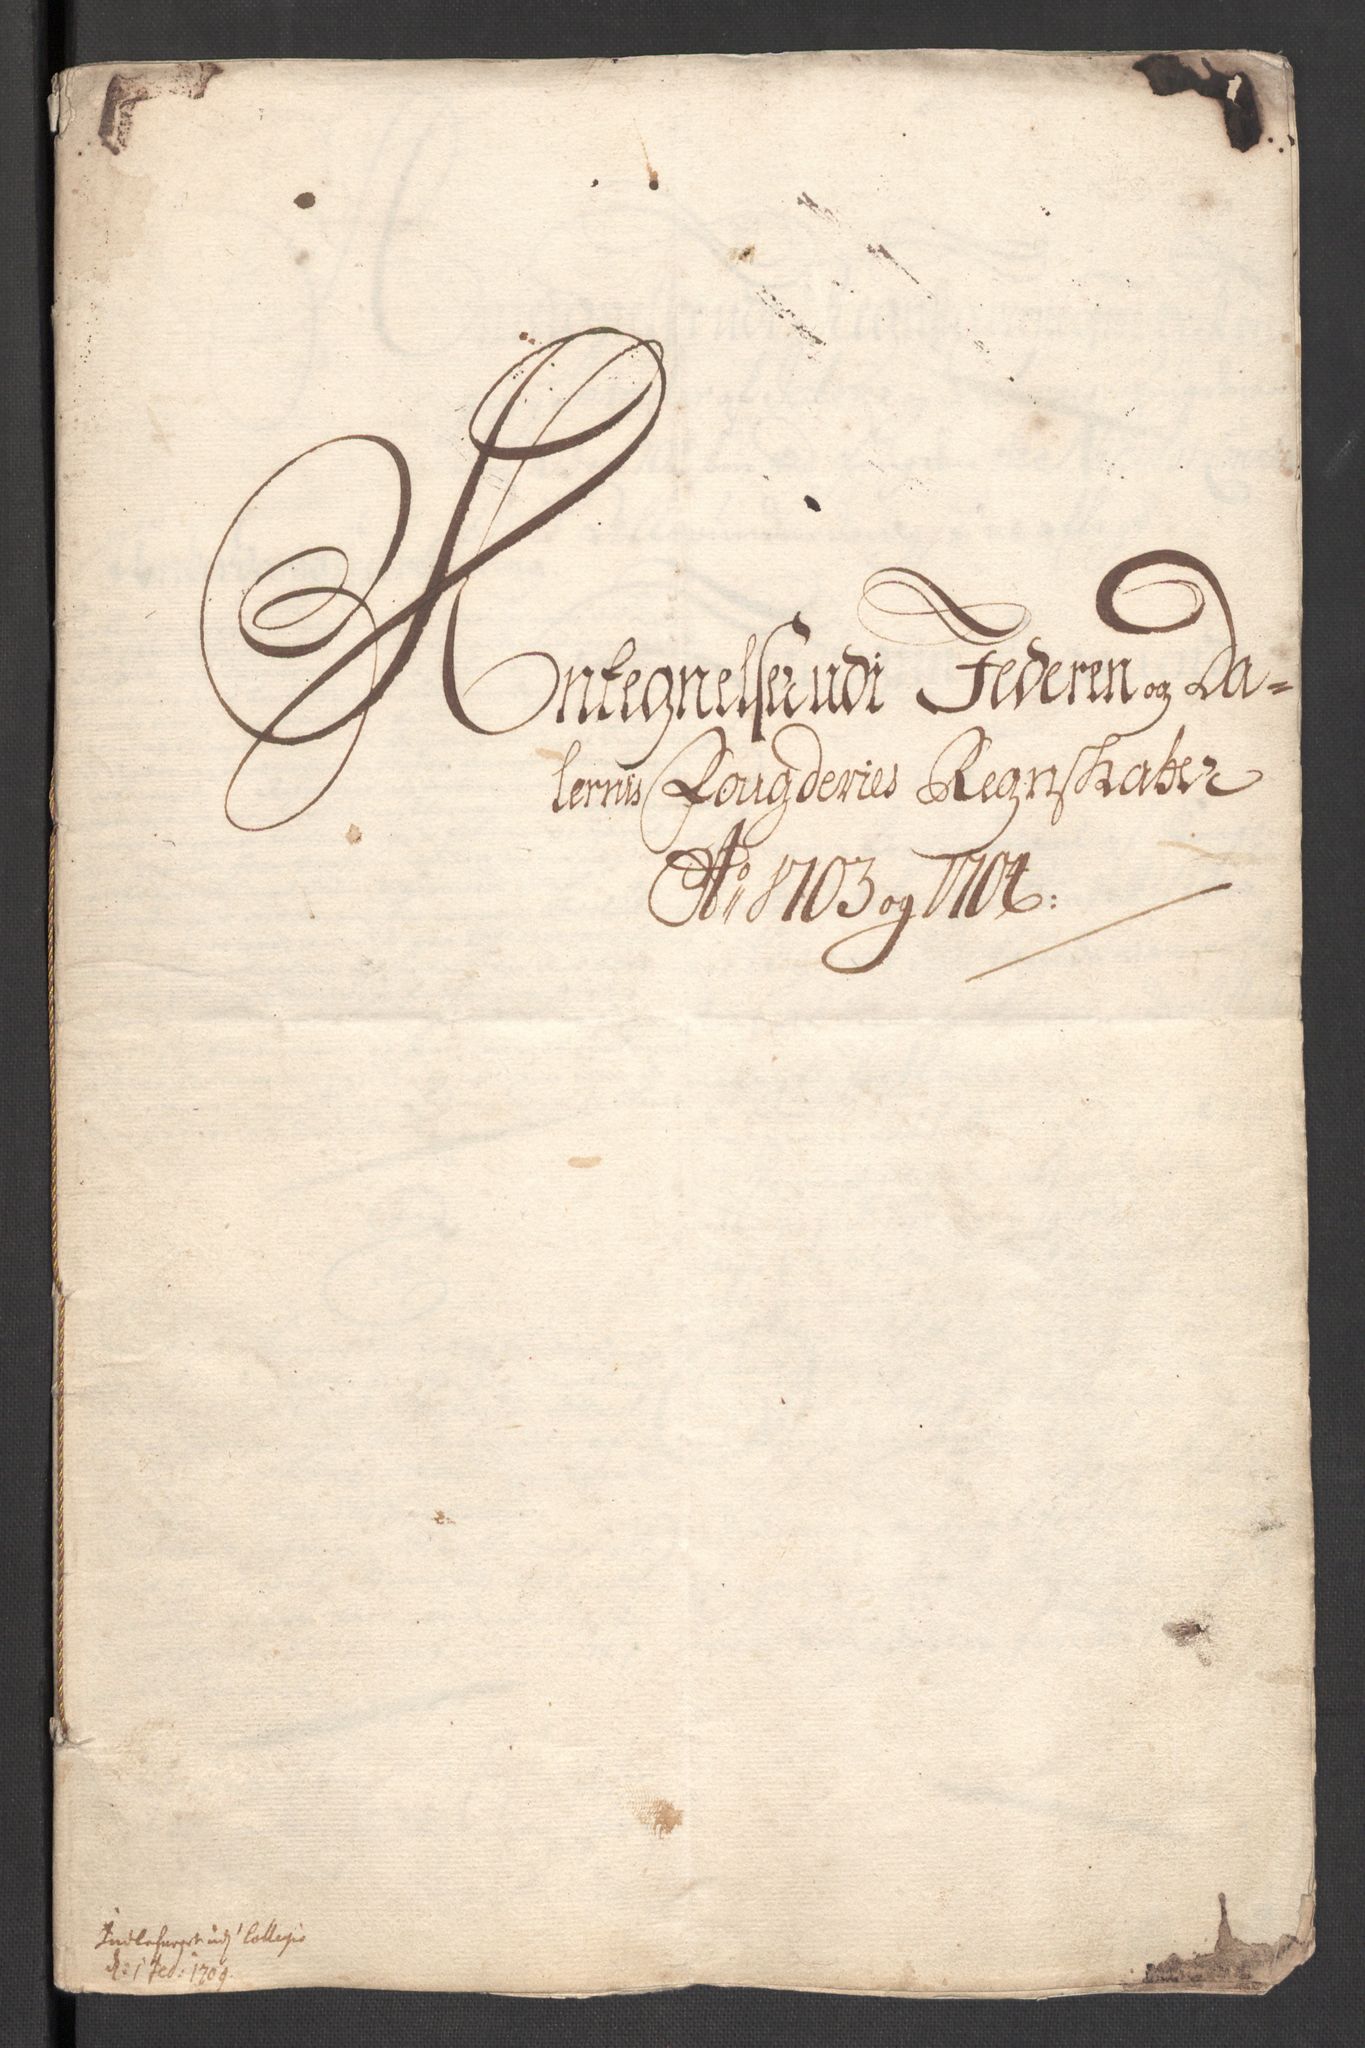 Antegnelser udi Jederen og Da=
lernis Fougderies Regnskaber
Ao: 1703 og 1704:
Indlefueret udj Collegio
d: 1 Feb: 1709.